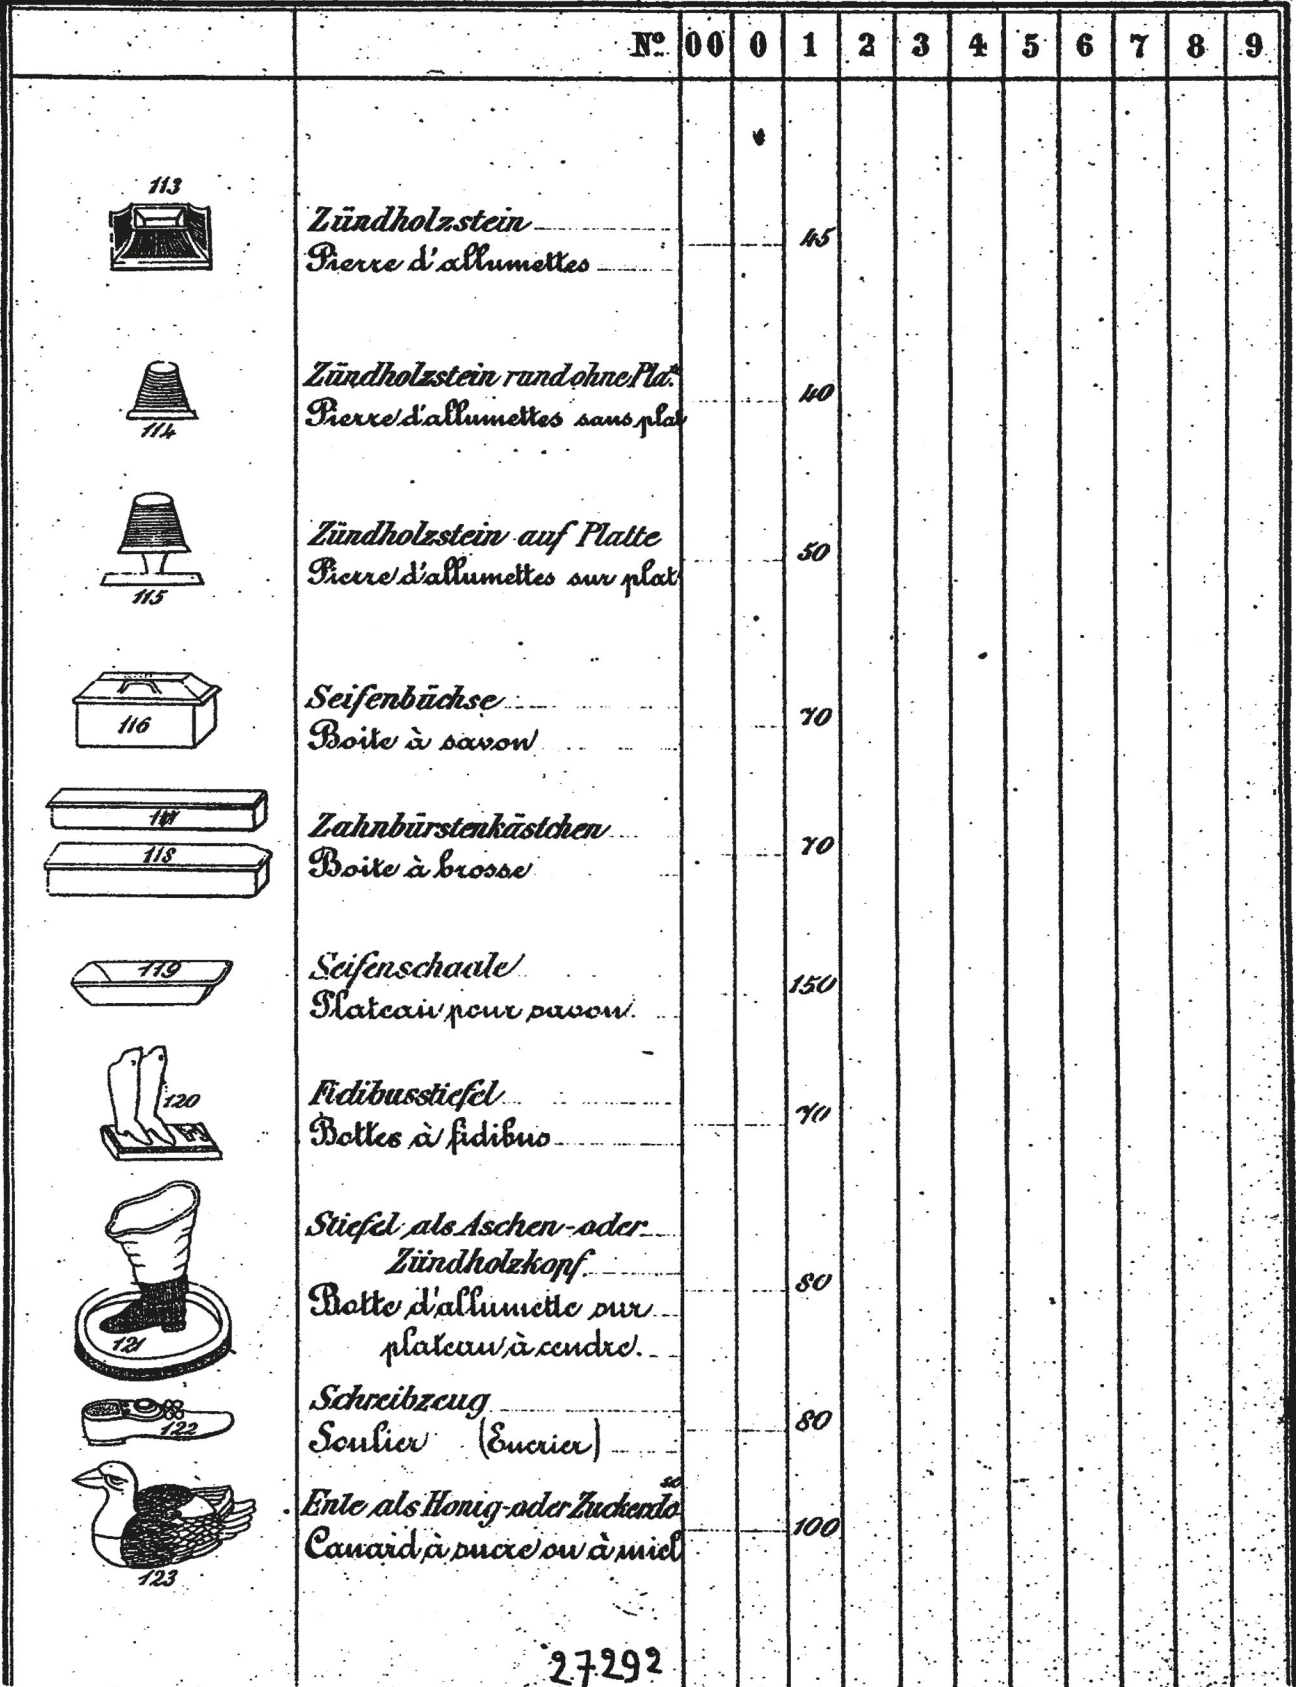 Nº 00 0 1 2 3 4 5 6 7 8 9
113
Zündholzstein
Pierre d'allumettes
45
Zündholzstein rund ohne Pla.te
Pierre d'allumettes sans plat
40
114
Zündholzstein auf Platte
Pierre d'allumettes sur plat
50
115
116
Seifenbüchse
Boite à savon
70
117
118
Zahnbürstenkästchen
Boite à brosse
70
119
Seifenschaale
Plateau pour savon.
150
120
Fidibusstiefel
Bottes à fidibus
70
Stiefel als Aschen- oder
Zündholzkopf.
Botte d'allumette sur
plateau à cendre.
80
121
Schreibzeug
Soulier (Encrier)
80
122
Ente als Honig- oder Zuckerdose
Canard à sucre ou à miel
100
123
27292